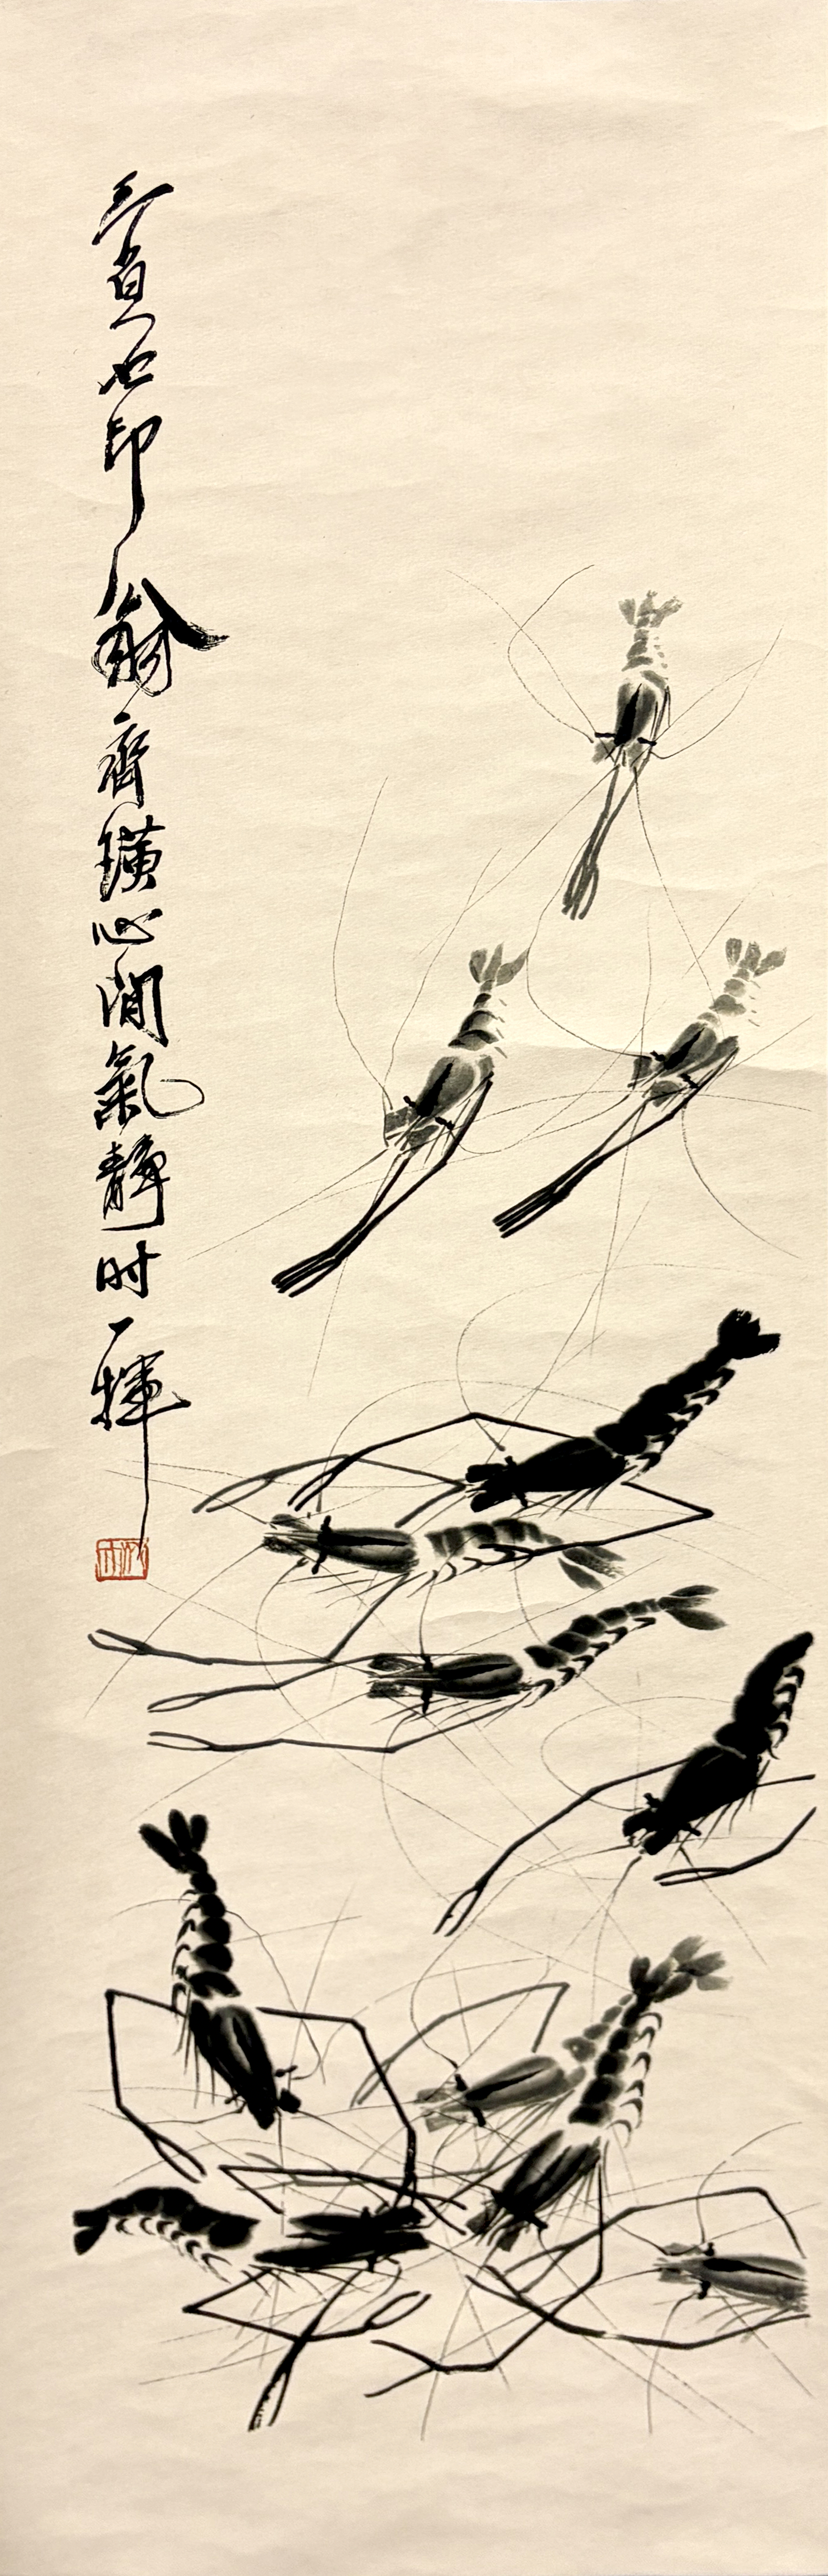 三百石印
翁齊璜心閒氣靜时一揮